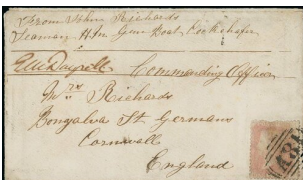 From John Richards
Seaman H.M. Gun Boat
Commanding Officer
Mrs Richards
St Germans
Cornwall
England